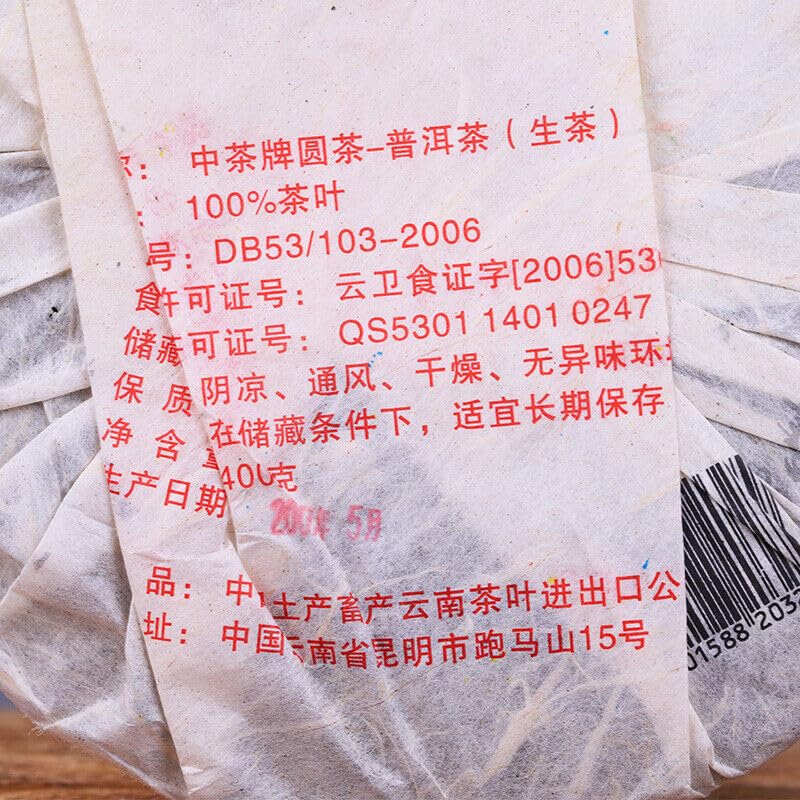 称： 中茶牌圆茶-普洱茶（生茶）
： 100%茶叶
号：DB53/103-2006
食许可证号： 云卫食证字[2006]530
储藏许可证号： QS5301 1401 0247
保 质 阴凉、通风、干燥、无异味环境
净 含 量 在储藏条件下，适宜长期保存
生产日期 400克
5月
品： 中 土产畜产云南茶叶进出口公
址： 中国云南省昆明市跑马山15号
01588 2032